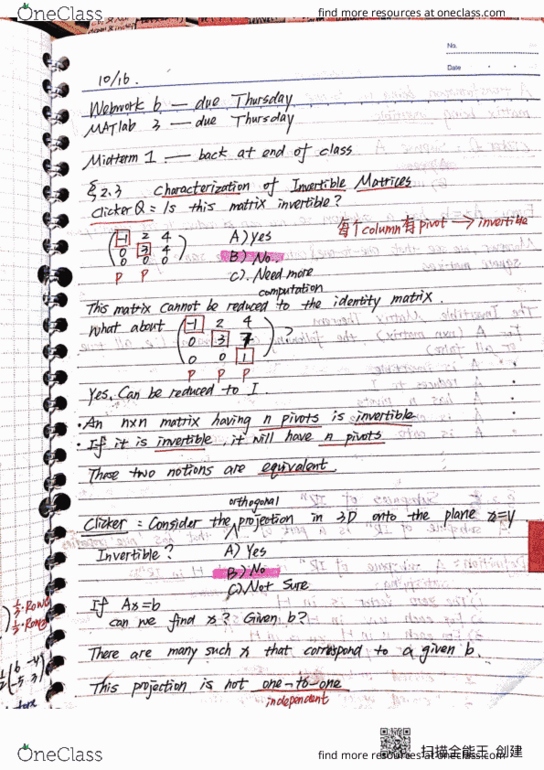 OneClass
find more resources at oneclass.com
No.
Date
10/16.
Webwork 6 — due Thursday
MATlab 3 — due Thursday
Midterm 1 — back at end of class
§2.3 Characterization of Invertible Matrices
Clicker Q = Is this matrix invertible?
每个column有pivot → invertible
-1 2 4
0 3 4
0 0 0
P P
A) Yes
B) No.
C). Need more computation
This matrix cannot be reduced to the identity matrix.
What about
-1 2 4
0 3 7
0 0 1
?
P P P
Yes. Can be reduced to I.
• An n×n matrix having n pivots is invertible
• If it is invertible, it will have n pivots
These two notions are equivalent.
Clicker = Consider the orthogonal projection in 3D onto the plane x=y
Invertible?
A) Yes
B) No
C) Not Sure
If Ax=b
can we find x? Given b?
There are many such x that correspond to a given b.
This projection is not one-to-one
independent
1/3·Row
1/3·Row
1/2 ( 6 -4
-5 3 )
OneClass
find more resources at oneclass.com
扫描全能王 创建